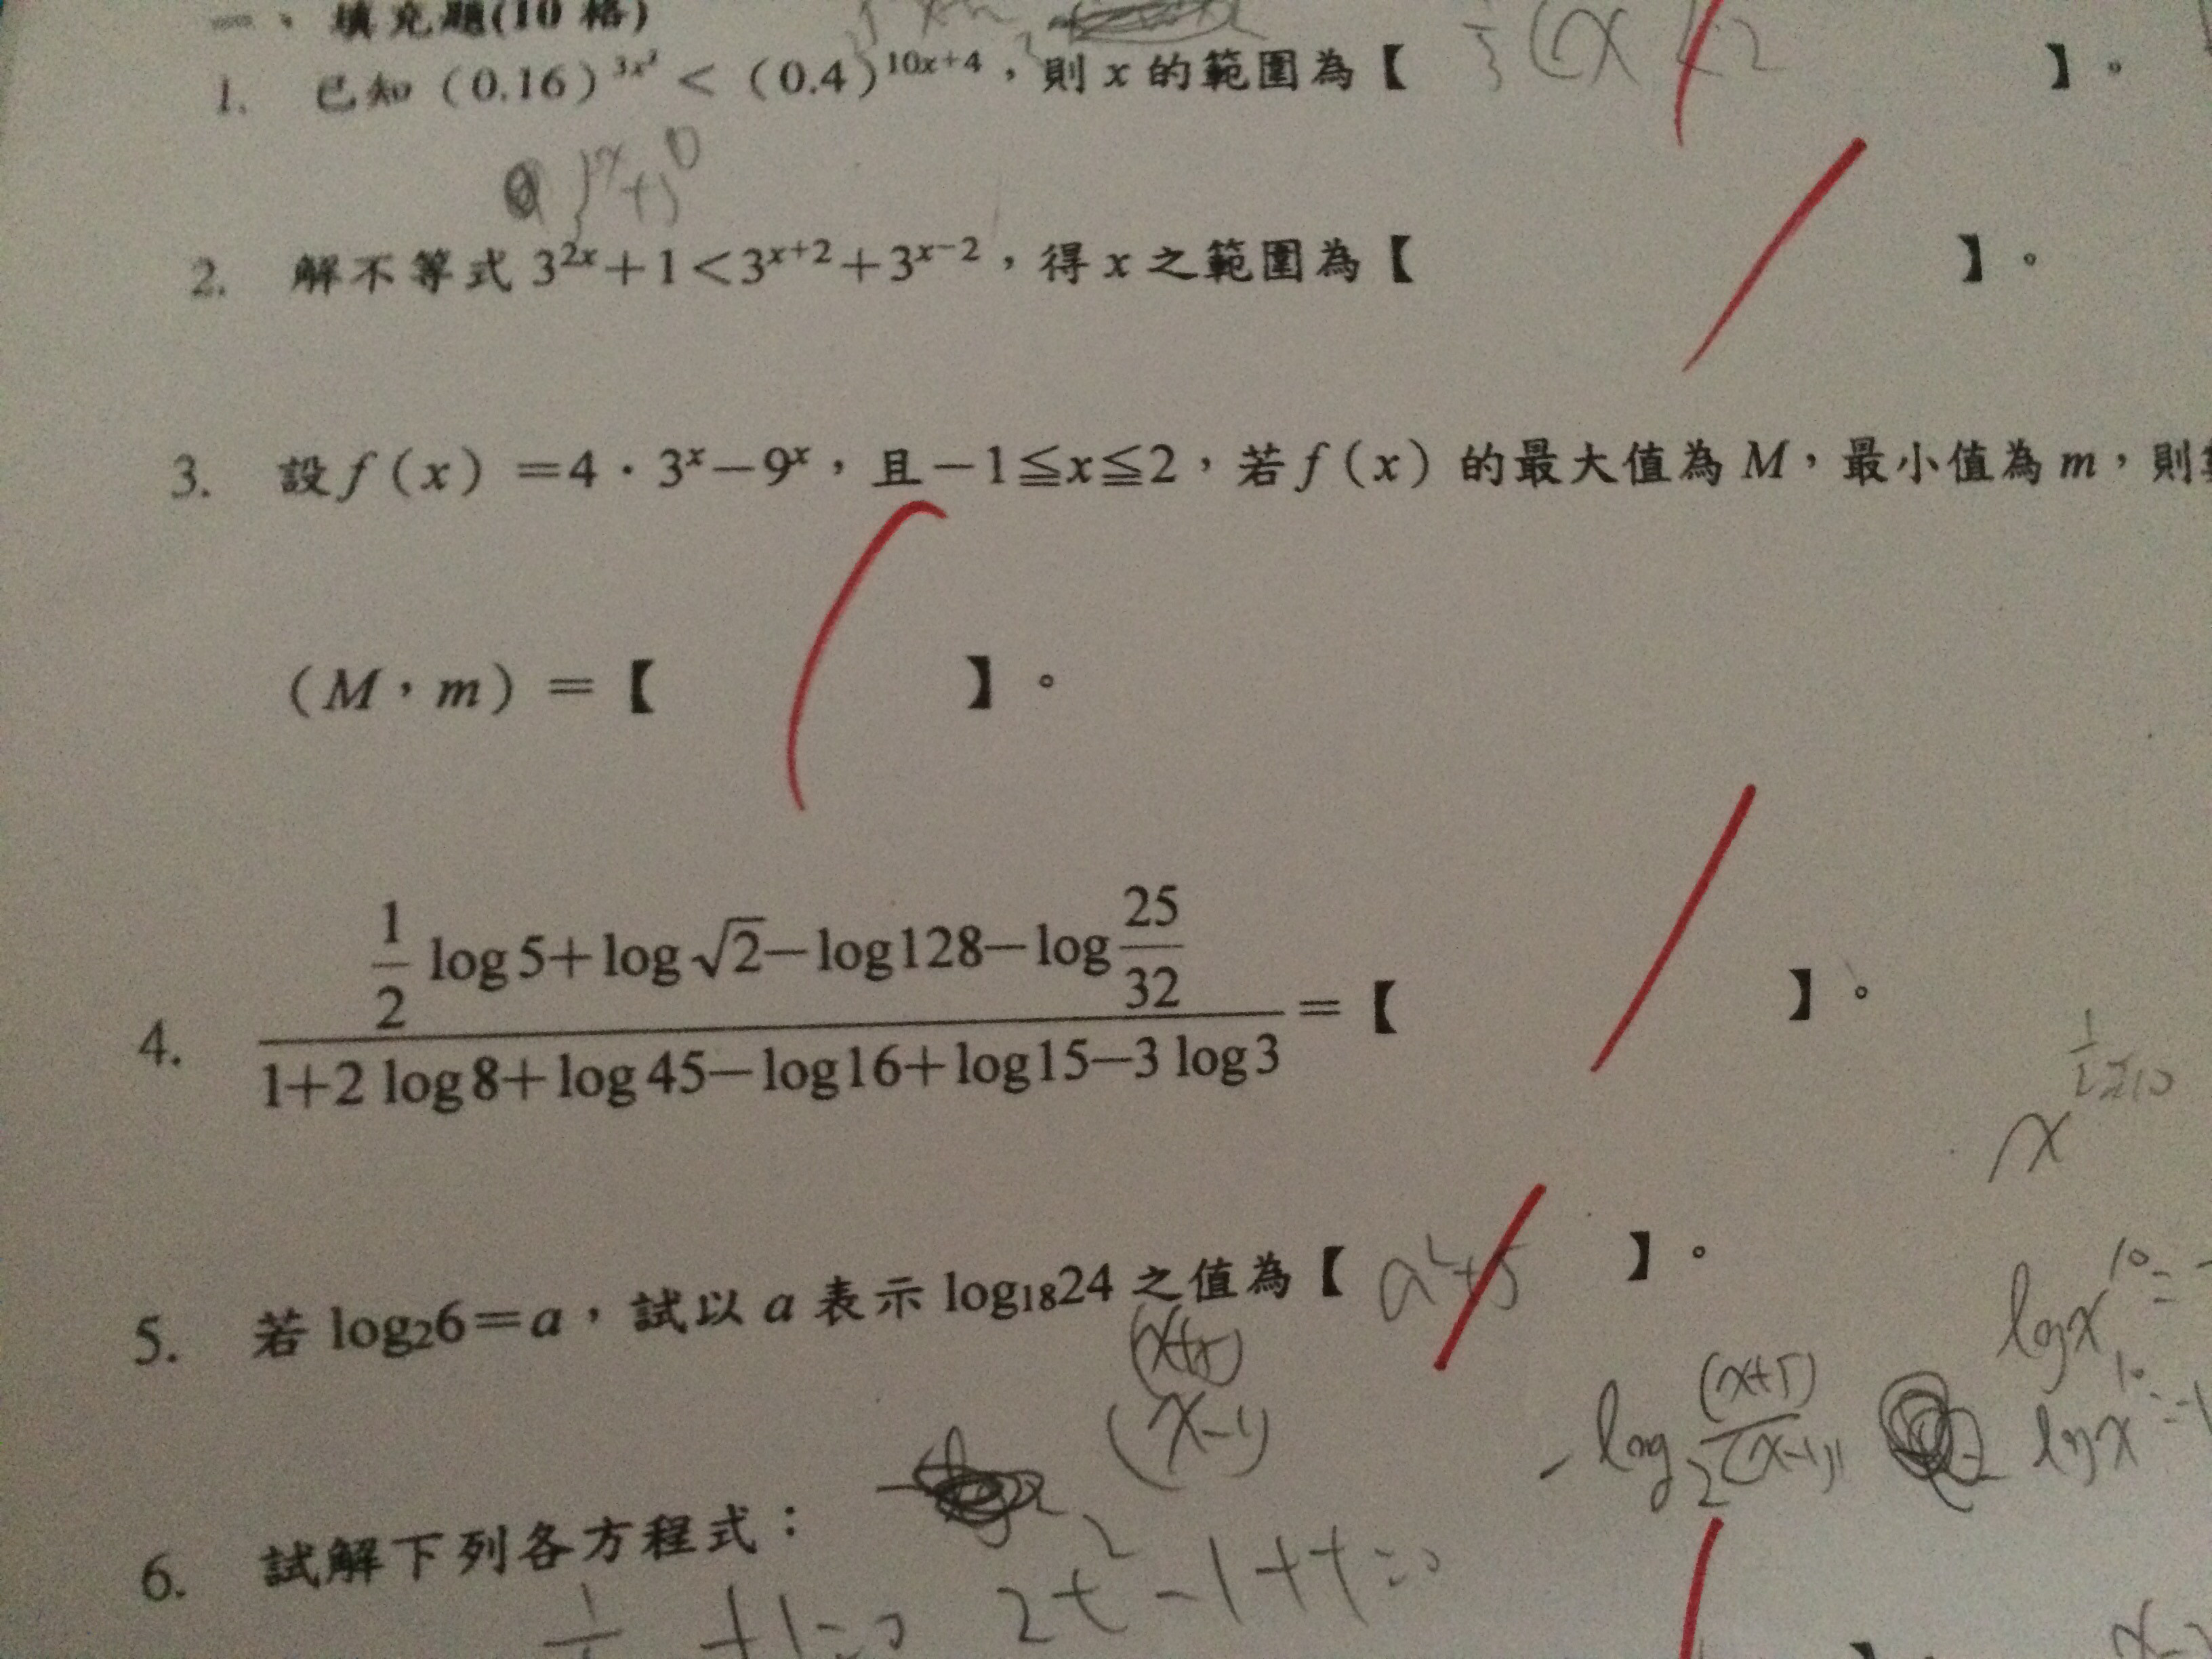 一、填充題(10 格)
1. 已知 (0.16)^{3x²} < (0.4)^{10x+4}，則 x 的範圍為【 】。
2. 解不等式 3^{2x}+1<3^{x+2}+3^{x-2}，得 x 之範圍為【 】。
3. 設 f(x) =4．3^x－9^x，且－1≦x≦2，若 f(x) 的最大值為 M，最小值為 m，則
(M，m) =【 】。
4. \frac{\frac{1}{2} log5+log√2－log128－log\frac{25}{32}}{1+2 log8+log45－log16+log15－3 log3} =【 】。
5. 若 log₂6=a，試以 a 表示 log₁₈24 之值為【 a²+5 】。
(x-1)
(x+5)
6. 試解下列各方程式：
2t²-1+t=0